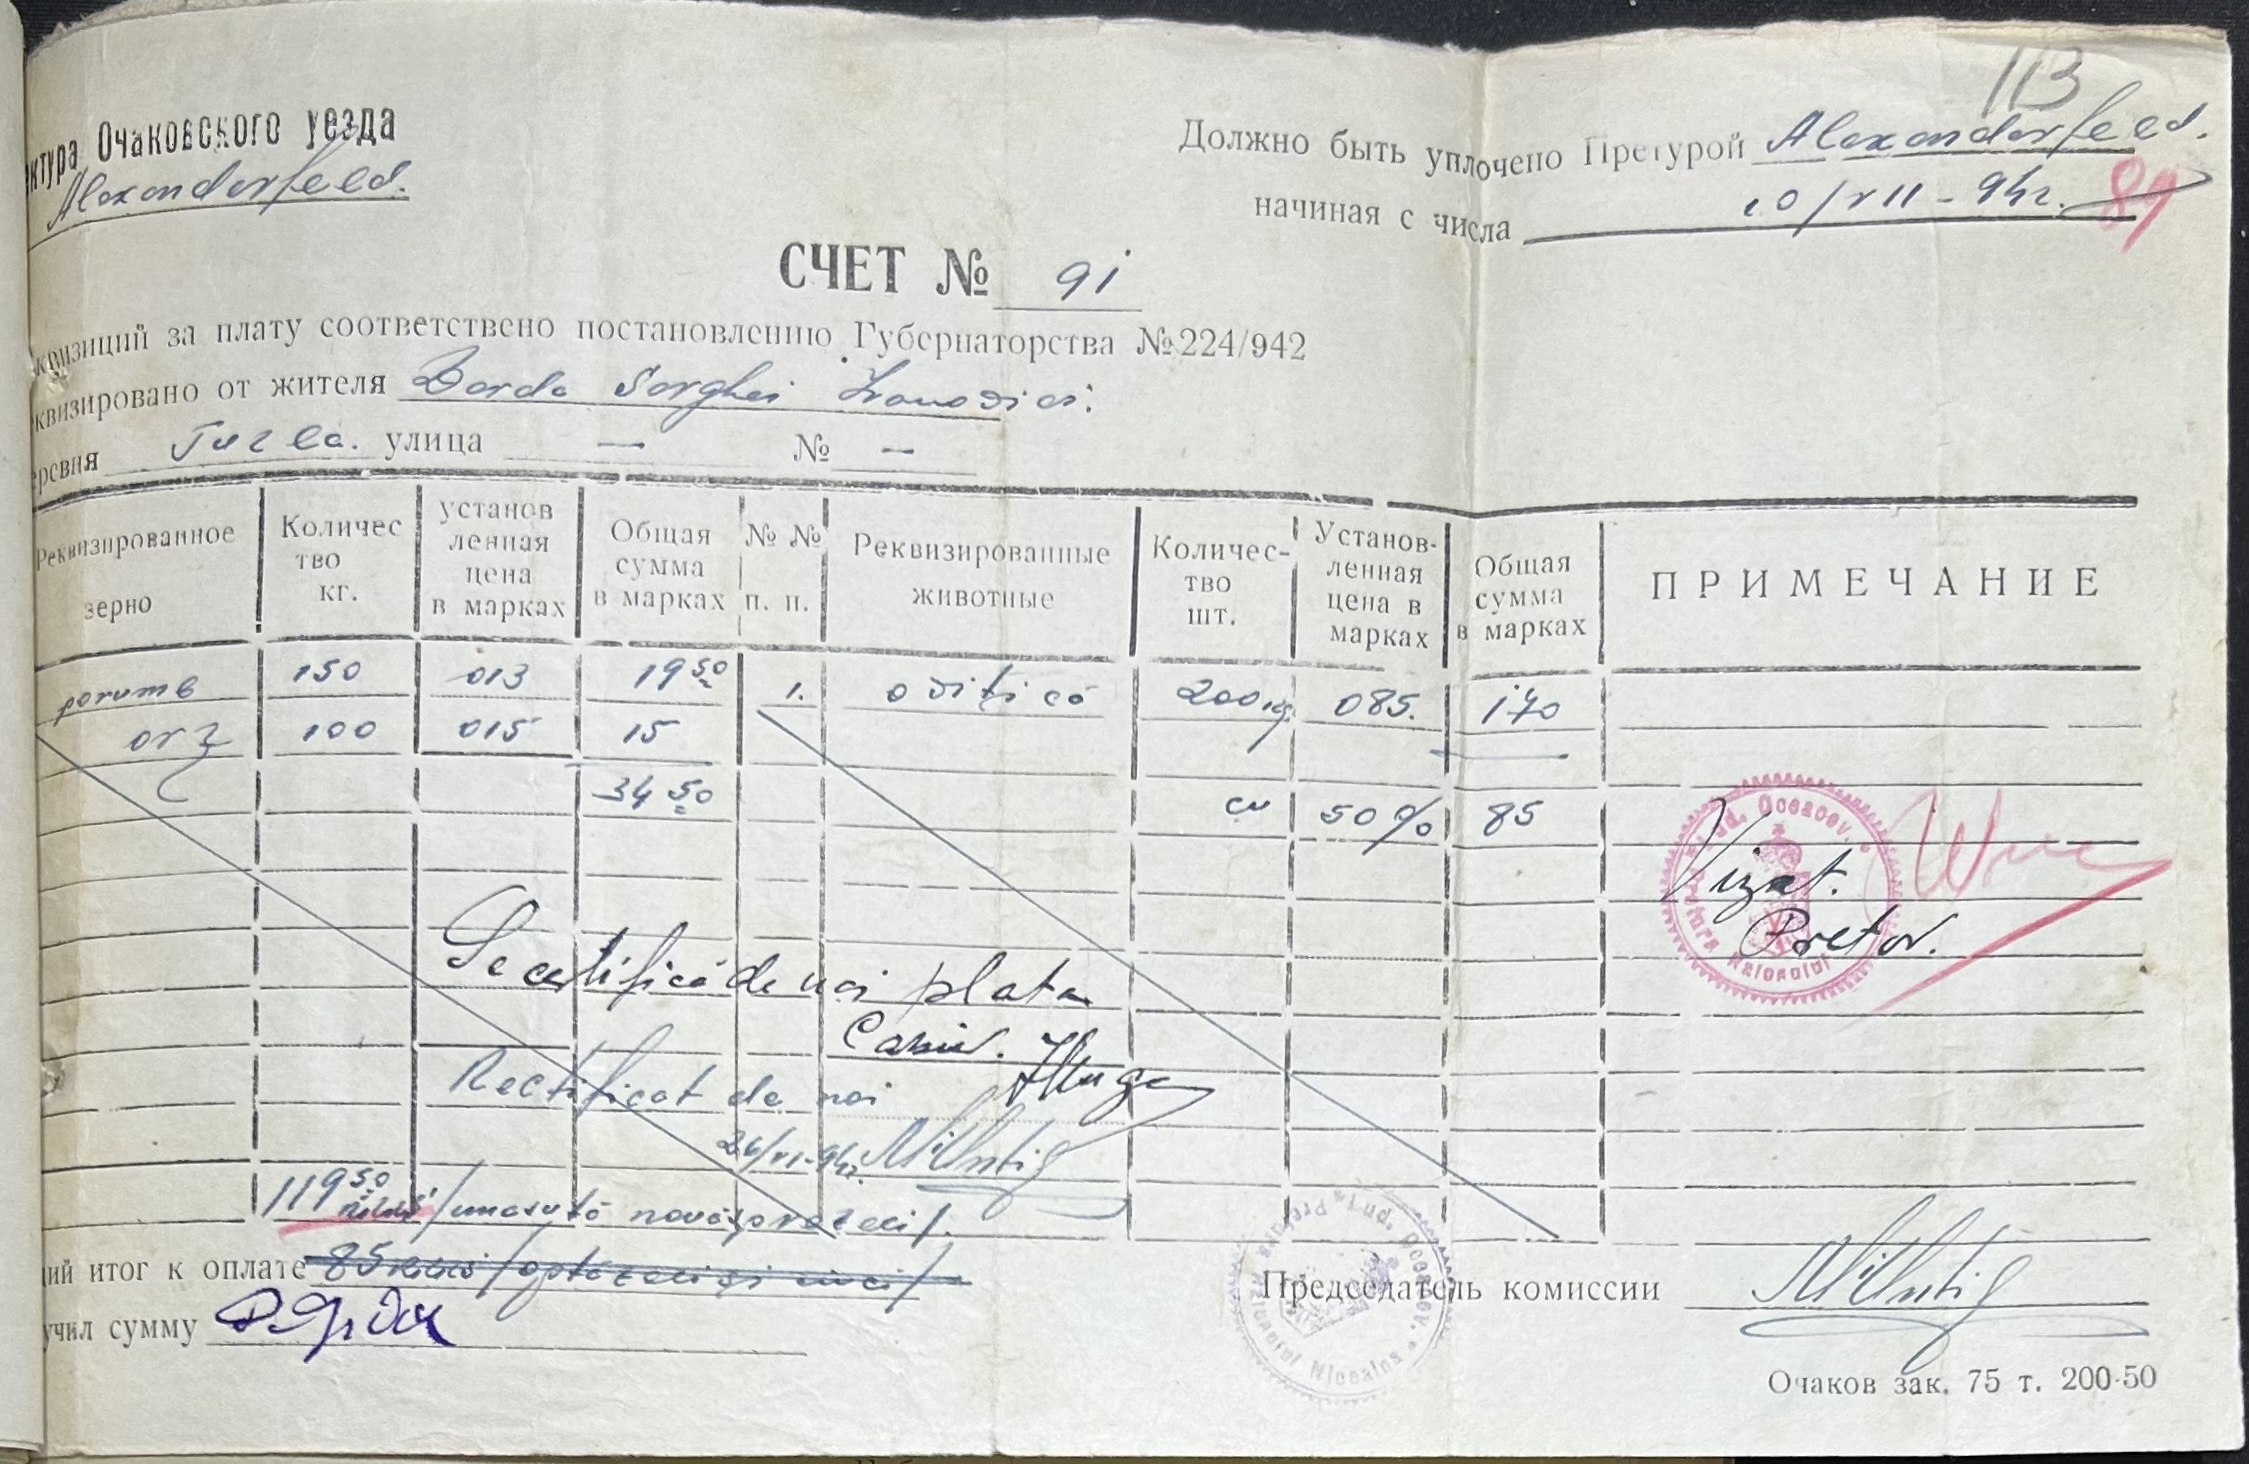 113
ктура Очаковского уезда
Alexanderfeld.
Должно быть уплочено Претурой Alexanderfeld.
начиная с числа 10/VII-942. 89
СЧЕТ № 91
квизиций за плату соответствено постановлению Губернаторства №224/942
квизировано от жителя
еревня улица — № —
Реквизированное зерно Количес тво кг. установ ленная цена в марках Общая сумма в марках №№ п. п. Реквизированные животные Количес- тво шт. Установ- ленная цена в марках Общая сумма в марках ПРИМЕЧАНИЕ
porumb 150 013 19 50 1. o vițică 200 kg. 085. 170
orz 100 015 15
34 50 cu 50% 85
Vizat.
Pretor.
Jud. Oceacov.
Se certifică de noi plata
Casier.
Rectificat de noi
26/VI-942.
119 50 /unasută nouăsprezeci/.
ий итог к оплате 85 /optzeci și cinci/
учил сумму
Председатель комиссии
Pretura Raionului Jud. Oceacov.
Очаков зак. 75 т. 200-50